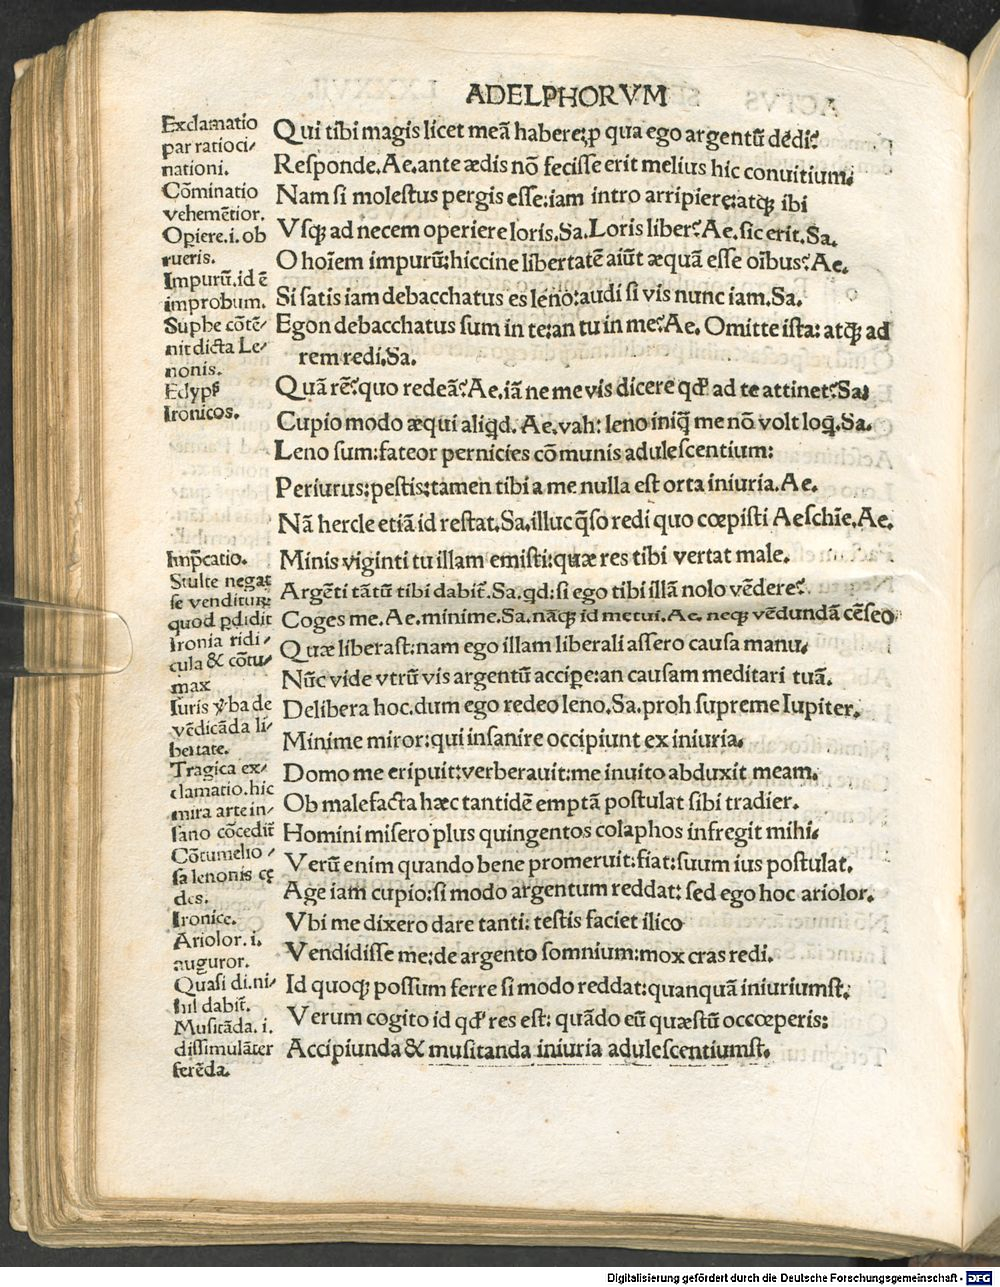 ADELPHORVM
Exclamatio
par ratioci/
nationi.
Cōminatio
vehemētior.
Opiere.i.ob
rueris.
Impurū.id ē
improbum.
Supbe cōtē/
nit dicta Le/
nonis.
Edypꝰ
Ironicos.
Imp̄catio.
Stulte negat
se venditurꝝ
quod pdidit
Ironia ridi/
cula & cōtu/
max
Iuris v̾ba de
vēdicāda li/
bertate.
Tragica ex/
clamatio.hic
mira arte in/
sano cōcedit̄
Cōtumelio/
sa lenonis cę
des.
Ironice.
Ariolor.i.
auguror.
Quasi di.ni/
hil dabit̄.
Musitāda.i.
dissimulāter
ferēda.
Qui tibi magis licet meā habere:ꝓ qua ego argentū dedi?
Responde.Ae.ante ædis nō fecisse erit melius hic conuitium.
Nam si molestus pergis esse:iam intro arripiere:atqꝫ ibi
Vsqꝫ ad necem operiere loris.Sa.Loris liber?Ae.sic erit.Sa.
O hoīem impurū:hiccine libertatē aiūt æquā esse oībus?Ae.
Si satis iam debacchatus es leno:audi si vis nunc iam.Sa.
Egon debacchatus sum in te:an tu in me?Ae.Omitte ista: atqꝫ ad
rem redi.Sa.
Quā rē?quo redeā?Ae.iā ne me vis dicere qd̛ ad te attinet?Sa.
Cupio modo æqui aliqd.Ae.vah: leno iniq̄ me nō volt loq̄.Sa.
Leno sum:fateor pernicies cōmunis adulescentium:
Periurus:pestis:tamen tibi a me nulla est orta iniuria.Ae.
Nā hercle etiā id restat.Sa.illuc q̄so redi quo cœpisti Aeschīe.Ae.
Minis viginti tu illam emisti:quæ res tibi vertat male.
Argēti tātū tibi dabit̄.Sa.qd:si ego tibi illā nolo vēdere?
Coges me.Ae.minime.Sa.nāqꝫ id metui.Ae.neqꝫ vēdundā cēseo
Quæ liberast:nam ego illam liberali assero causa manu.
Nūc vide vtrū vis argentū accipe:an causam meditari tuā.
Delibera hoc.dum ego redeo leno.Sa.proh supreme Iupiter.
Minime miror:qui insanire occipiunt ex iniuria.
Domo me eripuit:verberauit:me inuito abduxit meam.
Ob malefacta hæc tantidē emptā postulat sibi tradier.
Homini misero plus quingentos colaphos infregit mihi.
Verū enim quando bene promeruit:fiat:suum ius postulat.
Age iam cupio:si modo argentum reddat: sed ego hoc ariolor.
Vbi me dixero dare tanti: testis faciet ilico
Vendidisse me:de argento somnium:mox cras redi.
Id quoqꝫ possum ferre si modo reddat:quanquā iniuriumst.
Verum cogito id qd̛ res est: quādo eū quæstū occœperis:
Accipiunda & musitanda iniuria adulescentiumst.
Digitalisierung gefördert durch die Deutsche Forschungsgemeinschaft - DFG